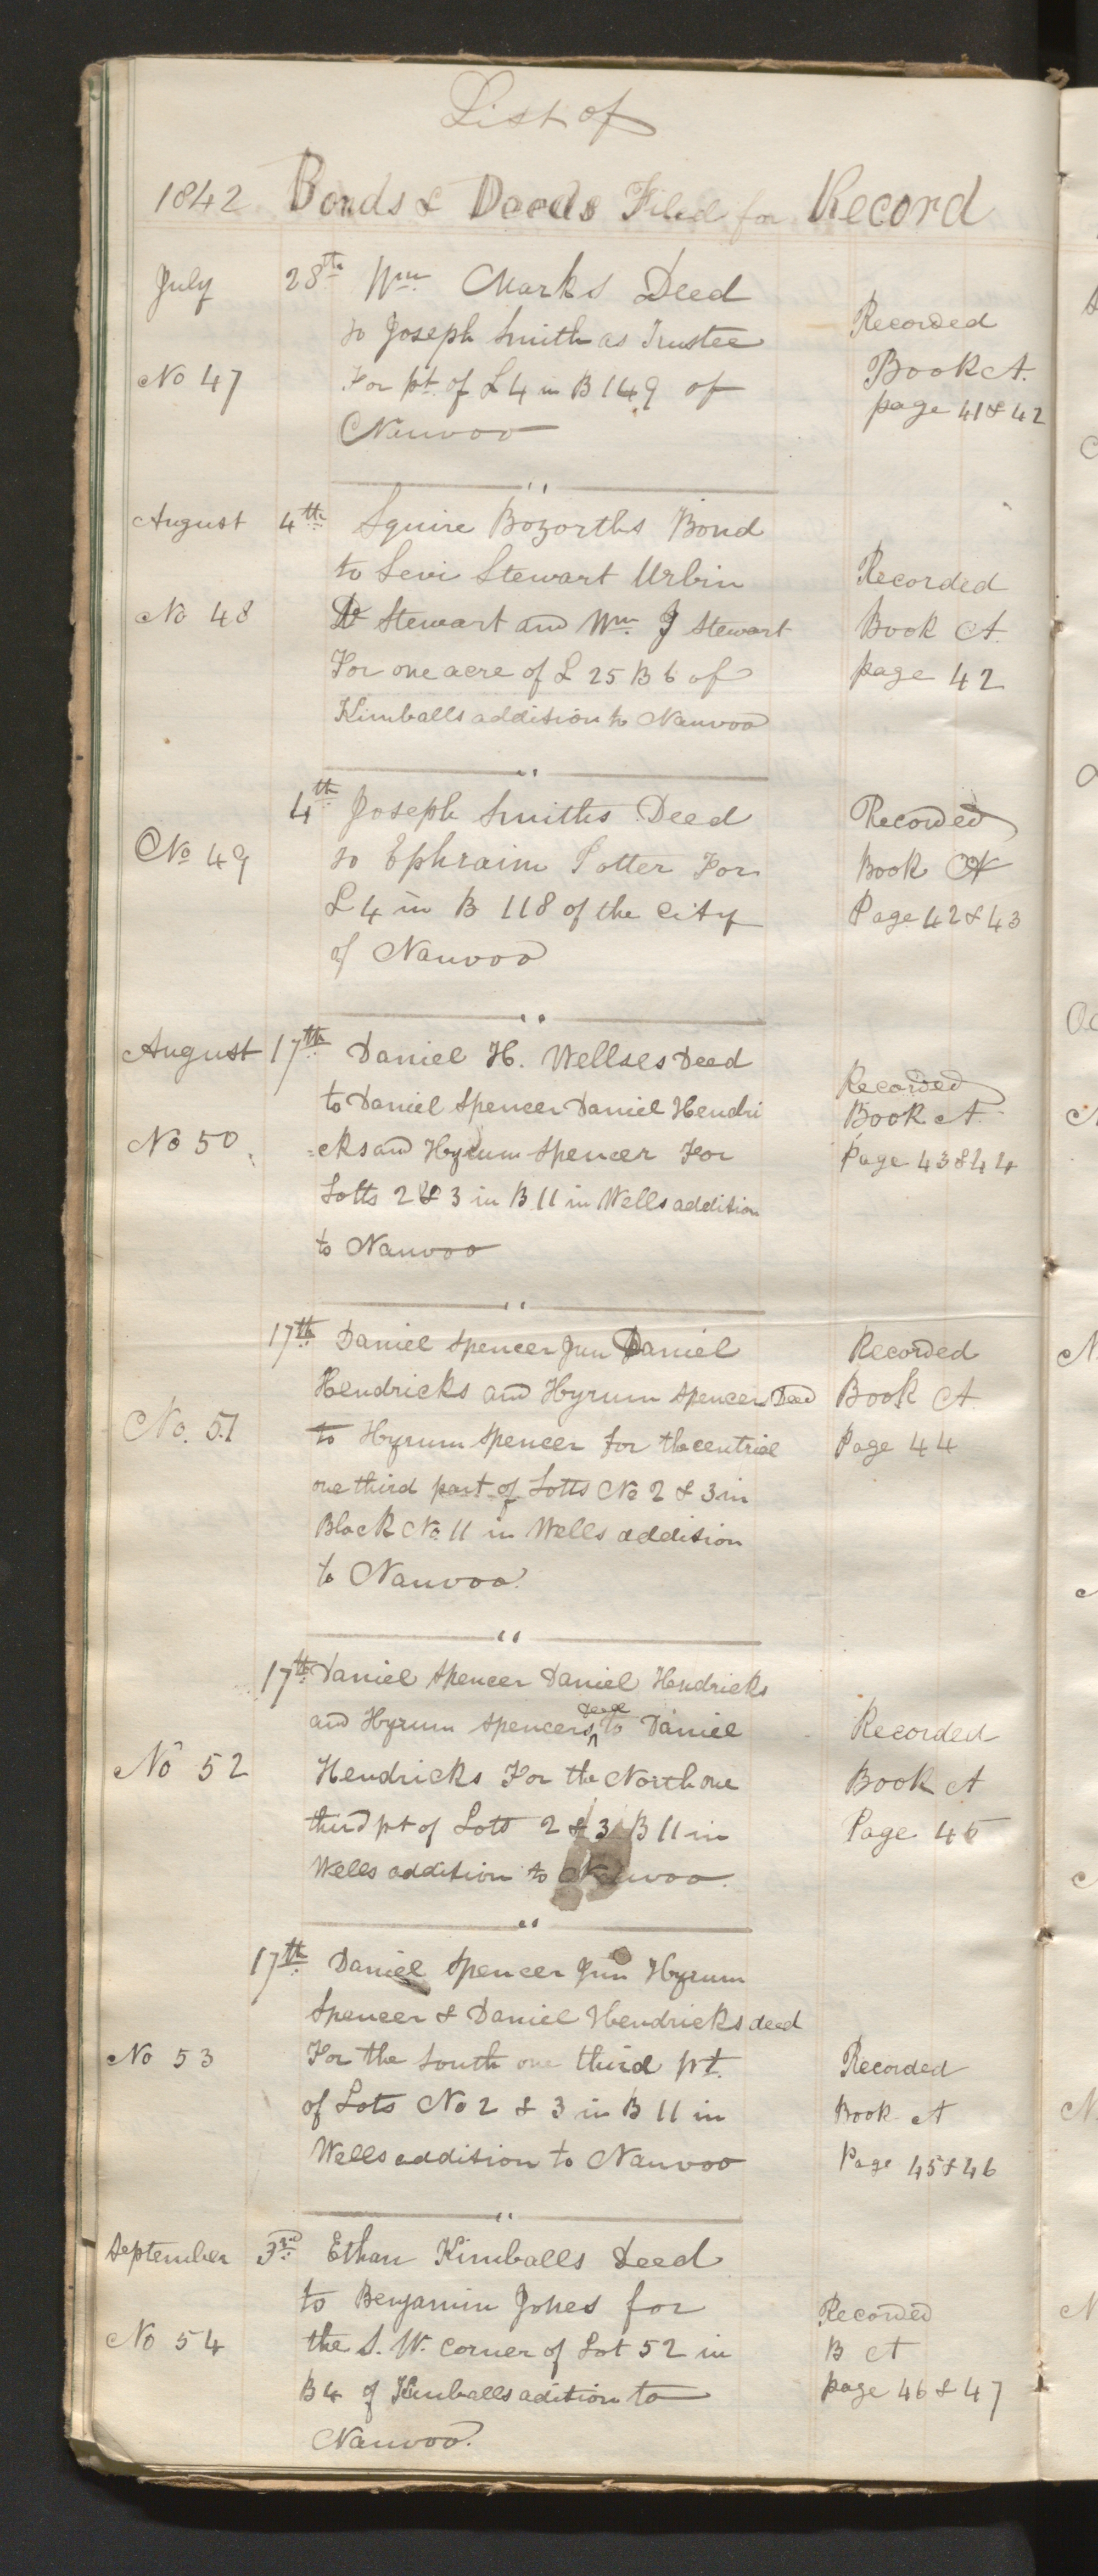 List of
1842 Bonds & Deeds Filed for Record
July 28th Wm Marks Deed
to Joseph Smith as Trustee Recorded
No 47 For pt of L 4 in B 149 of Book A.
Nauvoo page 41 & 42
August 4th Squire Bozorths Bond
to Levi Stewart Urbin Recorded
No 48 Stewart and Wm J Stewart Book A.
For one acre of L 25 B 6 of page 42
Kimballs addition to Nauvoo
4th Joseph Smiths Deed Recorded
No 49 to Ephraim Potter For Book A
L 4 in B 118 of the City Page 42 & 43
of Nauvoo
August 17th Daniel H. Wellses Deed Recorded
to Daniel Spencer Daniel Hendri Book A.
No 50. =cks and Hyrum Spencer For Page 43 & 44
Lotts 2 & 3 in B 11 in Wells addition
to Nauvoo
17th Daniel Spencer Jun Daniel Recorded
Hendricks and Hyrum Spencers Deed Book A
No. 51 to Hyrum Spencer for the centriel Page 44
one third part of Lotts No 2 & 3 in
Block No 11 in Wells addition
to Nauvoo.
17th Daniel Spencer Daniel Hendricks
and Hyrum Spencers deed to Daniel Recorded
No 52 Hendricks For the North one Book A
third pt of Lots 2 & 3 B 11 in Page 45
Wells addition to Nauvoo.
17th Daniel Spencer Jun Hyrum
Spencer & Daniel Hendricks deed
No 53 For the South one third pt. Recorded
of Lots No 2 & 3 in B 11 in Book A
Wells addition to Nauvoo Page 45 & 46
September 3rd Ethan Kimballs Deed
to Benjamin Jones for Recorded
No 54 the S. W. corner of Lot 52 in B A
B 4 of Kimballs adition to page 46 & 47
Nauvoo.